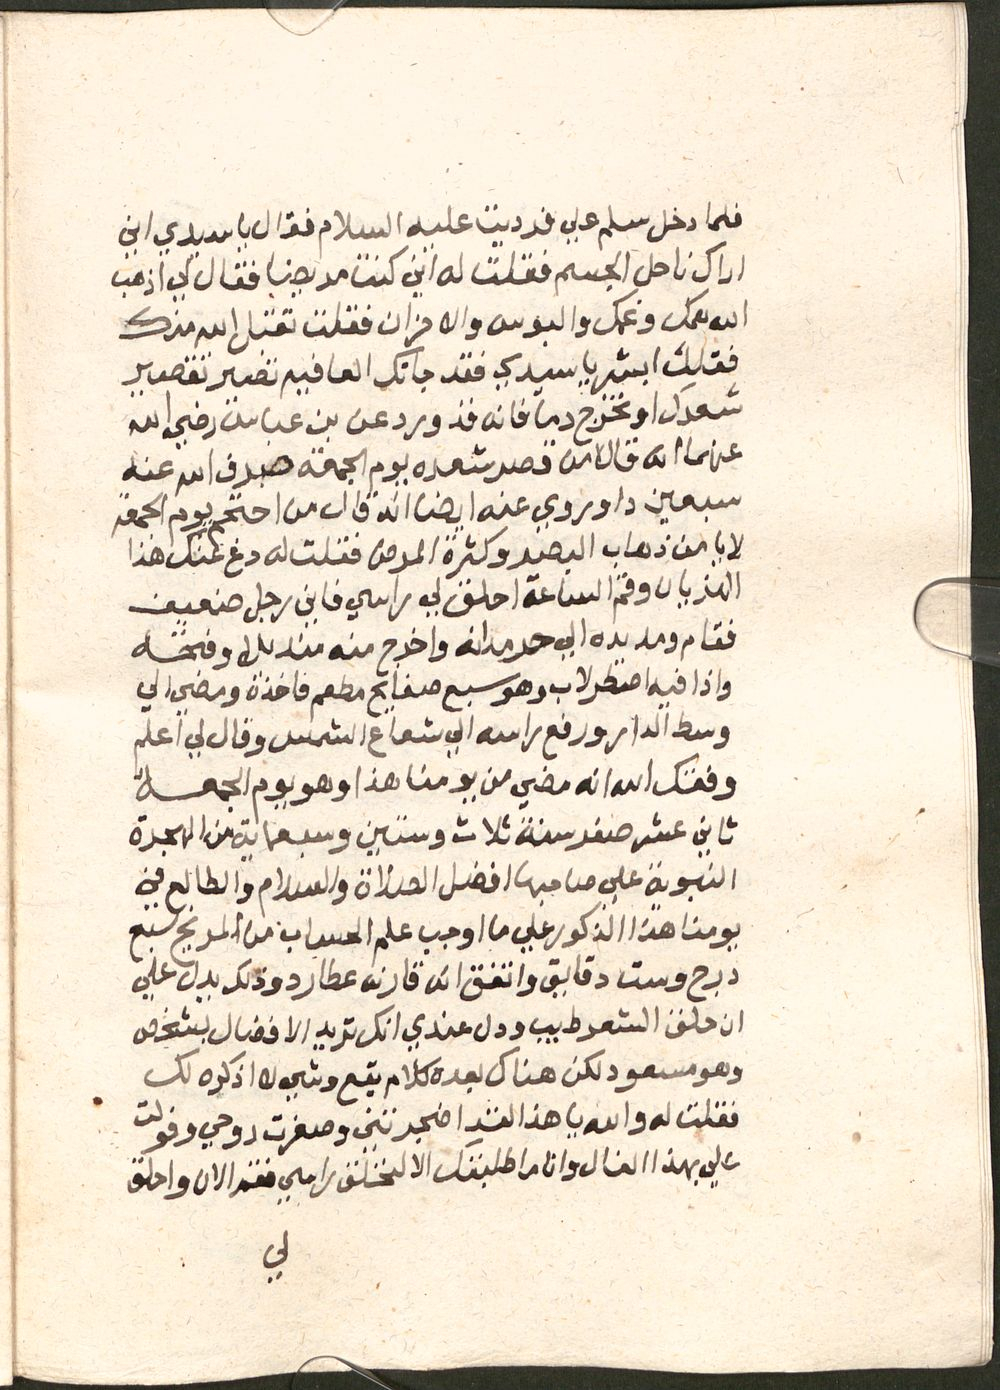 فلما دخل سلم علي فرديت عليه السلام فقال يا سيدي اني
اراك ناحل الجسم فقلت له اني كنت مريضا فقال لي اذهب
الله همك وغمك والبوس والاحزان فقلت تقبل الله منك
فقلت ابشر يا سيدي فقد جاتك العافيه تقصير
شعرك او تخرج دما فانه قد ورد عن بن عباس رضي الله
عنهما انه قال من قصر شعره يوم الجمعة صرف الله عنه
سبعين دا وروي عنه ايضا انه قال من احتجم يوم الجمعة
لا يامن ذهاب البصر وكثرة المرض فقلت له دع عنك هذا
الهذيان وقم الساعة احلق لي راسي فاني رجل ضعيف
فقام ومد يده الي حرمدانه واخرج منه منديلا وفتحه
واذا فيه اصطرلاب وهو سبع صفايح مطعم فاخذه ومضي الي
وسط الدار ورفع راسه الي شعاع الشمس وقال لي اعلم
وفقك الله انه مضي من يومنا هذا وهو يوم الجمعة
ثاني عشر صفر سنة ثلاث وستين وسبعماية من الهجرة
النبوية علي صاحبها افضل الصلاة والسلام والطالع في
يومنا هذا الذكور علي ما اوجب علم الحساب من المريخ سبع
درج وست دقايق واتفق انه قارنه عطارد وذلك يدل علي
ان حلق الشعر طيب ودل عندي انك تريد الافضال بشخص
وهو مسعود لكن هناك بعده كلام يقع وشي لا اذكره لك
فقلت له والله يا هذا لقد اضجرتني وصغرت روحي وفولت
علي بهذا الفال وانا ما طلبتك الا لتحلق راسي فقم الان واحلق
لي